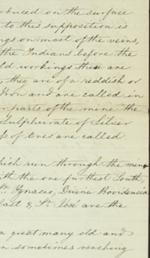 on the surface
to this supposition is
on most of the veins,
the Indians before the
old workings that are
they are of a reddish or
and are called in
parts of the mine the
Sulphurate of Silver
of ores are called
which run through the mine
with the one furthest South
Ignacio, Divina Providencia
the
a great many old and
sometimes reaching